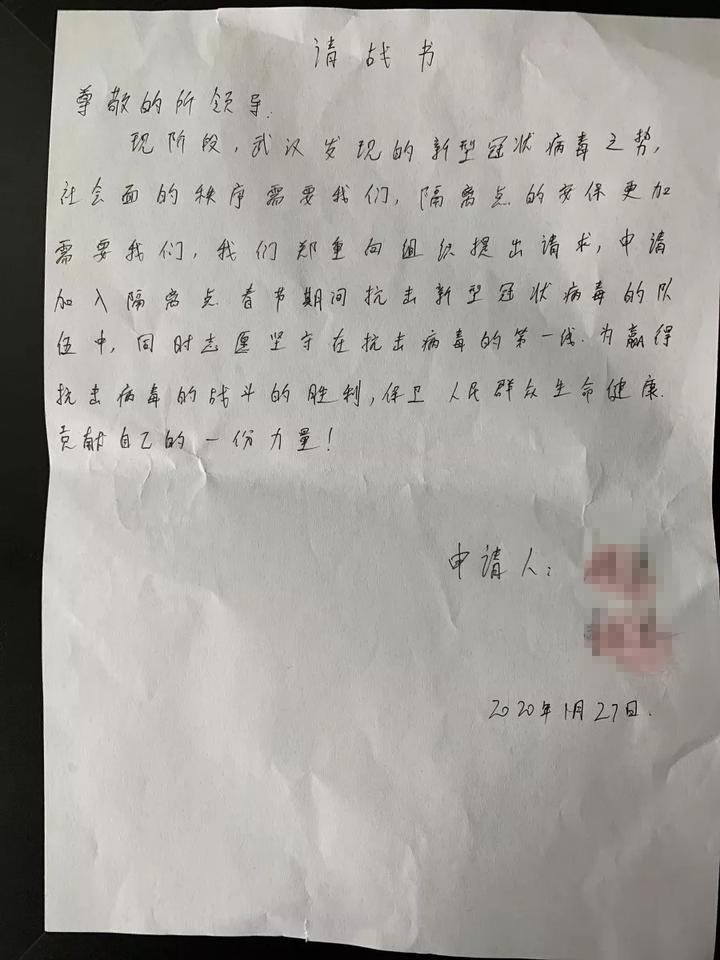 请战书
尊敬的所领导:
现阶段,武汉发现的新型冠状病毒之势,
社会面的秩序需要我们,隔离点的安保更加
需要我们,我们郑重向组织提出请求,申请
加入隔离点春节期间抗击新型冠状病毒的队
伍中,同时志愿坚守在抗击病毒的第一线.为赢得
抗击病毒的战斗的胜利,保卫人民群众生命健康.
贡献自己的一份力量!
申请人:
2020年1月27日.